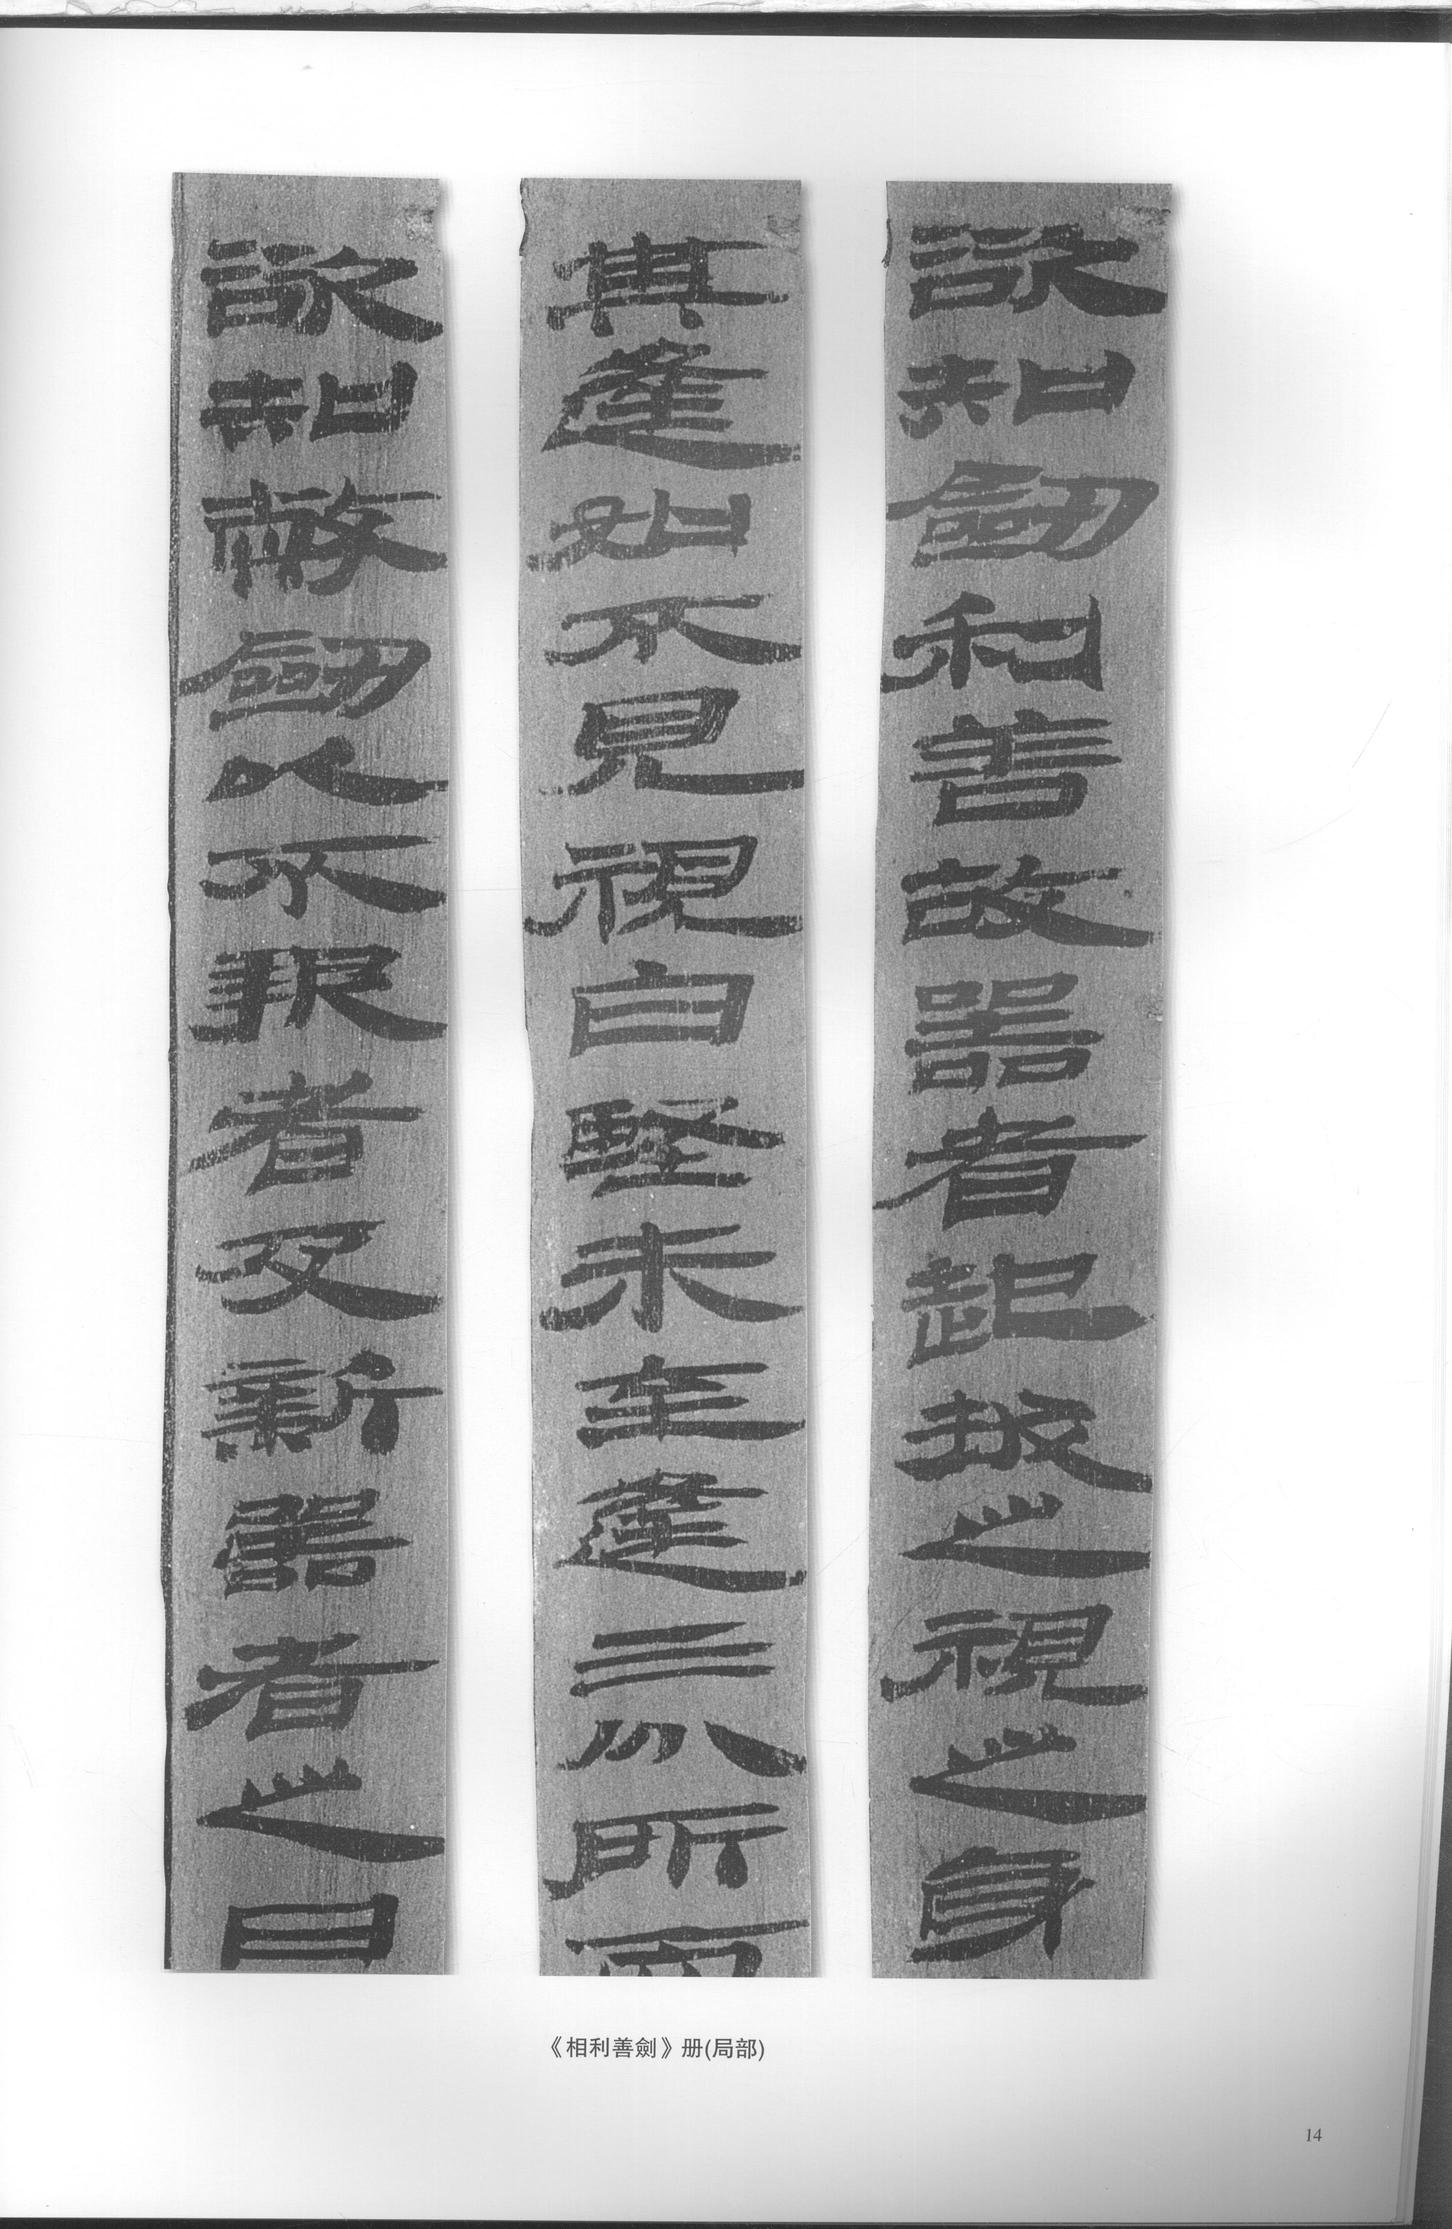 欲知劍利善故器者起拔之視之身
其逢如不見視白堅未至逢三分所而
欲知幣劍以不報者及新器者之日
《相利善劍》册(局部)
14